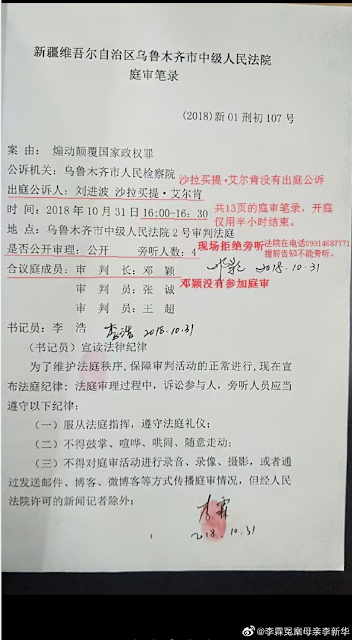 新疆维吾尔自治区乌鲁木齐市中级人民法院
庭审笔录
(2018)新01刑初107号
案由：煽动颠覆国家政权罪
公诉机关：乌鲁木齐市人民检察院
沙拉买提·艾尔肯没有出庭公诉
出庭公诉人：刘进波 沙拉买提·艾尔肯
时间：2018年10月31日16:00-16：30
共13页的庭审笔录，开庭
仅用半小时结束。
地点：乌鲁木齐市中级人民法院2号审判法庭
是否公开审理：公开 旁听人数：4
现场拒绝旁听
法院在电话09914687771
提前告知不能旁听。
合议庭成员：审判长：邓颖
2018.10.31
审判员：张诚
邓颖没有参加庭审
审判员：王超
书记员：李浩 李浩 2018.10.31
（书记员）宣读法律纪律
为了维护法庭秩序,保障审判活动的正常进行,现在宣
布法庭纪律：法庭审理过程中，诉讼参与人，旁听人员应当
遵守以下纪律：
（一）服从法庭指挥，遵守法庭礼仪；
（二）不得鼓掌、喧哗、哄闹、随意走动；
（三）不得对庭审活动进行录音、录像、摄影，或者通
过发送邮件、博客、微博客等方式传播庭审情况，但经人民
法院许可的新闻记者除外；
李霖
2018.10.31
1
@李霖冤案母亲李新华